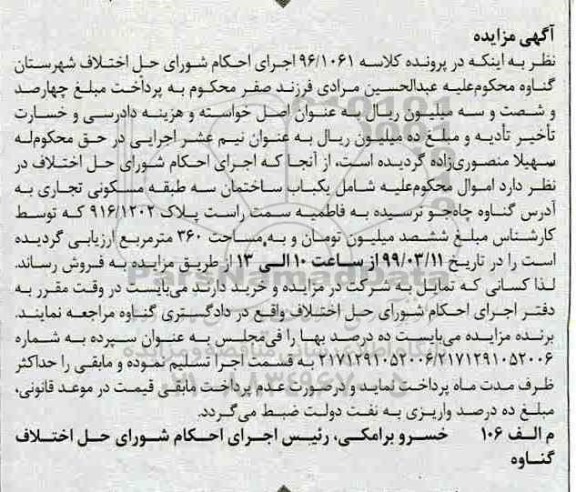 آگهی مزایده
نظر به اینکه در پرونده کلاسه ۹۶/۱۰۶۱ اجرای احکام شورای حل اختلاف شهرستان
گناوه محکوم‌علیه عبدالحسین مرادی فرزند صفر محکوم به پرداخت مبلغ چهارصد
و شصت و سه میلیون ریال به عنوان اصل خواسته و هزینه دادرسی و خسارت
تأخیر تأدیه و مبلغ ده میلیون ریال به عنوان نیم عشر اجرایی در حق محکوم‌له
سهیلا منصوری‌زاده گردیده است، از آنجا که اجرای احکام شورای حل اختلاف در
نظر دارد اموال محکوم‌علیه شامل یکباب ساختمان سه طبقه مسکونی تجاری به
آدرس گناوه چاه‌جو نرسیده به فاطمیه سمت راست پلاک ۹۱۶/۱۲۰۲ که توسط
کارشناس مبلغ ششصد میلیون تومان و به مساحت ۳۶۰ مترمربع ارزیابی گردیده
است را در تاریخ ۹۹/۰۳/۱۱ از ساعت ۱۰ الی ۱۳ از طریق مزایده به فروش رساند.
لذا کسانی که تمایل به شرکت در مزایده و خرید دارند می‌بایست در وقت مقرر به
دفتر اجرای احکام شورای حل اختلاف واقع در دادگستری گناوه مراجعه نمایند.
برنده مزایده می‌بایست ده درصد بها را فی‌مجلس به عنوان سپرده به شماره
۲۱۷۱۲۹۱۰۵۲۰۰۶/۲۱۷۱۲۹۱۰۵۲۰۰۶ به قسمت اجرا تسلیم نموده و مابقی را حداکثر
ظرف مدت ماه پرداخت نماید و درصورت عدم پرداخت مابقی قیمت در موعد قانونی،
مبلغ ده درصد واریزی به نفت دولت ضبط می‌گردد.
م الف ۱۰۶ خسرو برامکی، رئیس اجرای احکام شورای حل اختلاف
گناوه